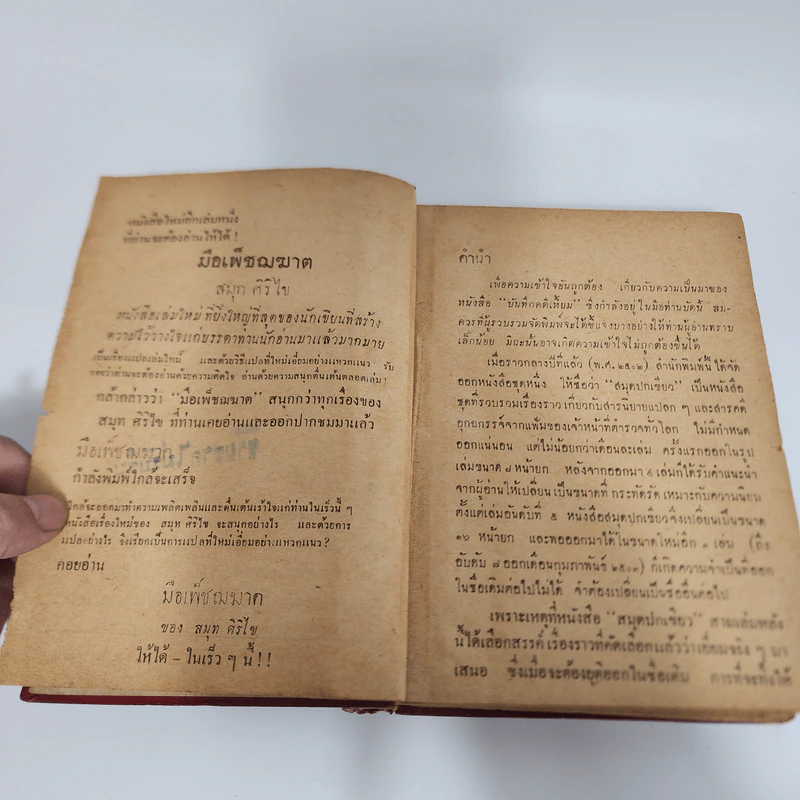 หนังสือใหม่อีกเล่มหนึ่ง
ที่ท่านจะต้องอ่านให้ได้ !
มือเพ็ชฌฆาต
สมุท ศิริไข
หนังสือเล่มใหม่ ที่ยิ่งใหญ่ที่สุดของนักเขียนที่สร้าง
ความไว้วางใจแก่บรรดาท่านนักอ่านมาแล้วมากมาย
เป็นเรื่องแปลเล่มใหม่ และด้วยวิธีแปลที่ใหม่เอี่ยมอย่างแหวกแนว รับ
รองว่าท่านจะต้องอ่านด้วยความติดใจ อ่านด้วยความสนุกตื่นเต้นตลอดเล่ม !
กล้ากล่าวว่า “มือเพ็ชฌฆาต” สนุกกว่าทุกเรื่องของ
สมุท ศิริไข ที่ท่านเคยอ่านและออกปากชมมาแล้ว
มือเพ็ชฌฆาต
กำลังพิมพ์ใกล้จะเสร็จ
ใกล้จะออกมาทำความเพลิดเพลินและตื่นเต้นเร้าใจแก่ท่านในเร็วนี้ ๆ
หนังสือเรื่องใหม่ของ สมุท ศิริไข จะสนุกอย่างไร และด้วยการ
แปลอย่างไร จึงเรียกเป็นการแปลที่ใหม่เอี่ยมอย่างแหวกแนว ?
คอยอ่าน
มือเพ็ชฌฆาต
ของ สมุท ศิริไข
ให้ได้ – ในเร็ว ๆ นี้ ! !
คำนำ
เพื่อความเข้าใจอันถูกต้อง เกี่ยวกับความเป็นมาของ
หนังสือ “บันทึกคดีเหี้ยม” ซึ่งกำลังอยู่ในมือท่านบัดนี้ สม-
ควรที่ผู้รวบรวมจัดพิมพ์จะได้ชี้แจงบางอย่างให้ท่านผู้อ่านทราบ
เล็กน้อย มิฉะนั้นอาจเกิดความเข้าใจไม่ถูกต้องขึ้นได้
เมื่อราวกลางปีที่แล้ว (พ.ศ. ๒๕๐๒) สำนักพิมพ์นี้ได้จัด
ออกหนังสือชุดหนึ่ง ให้ชื่อว่า “สมุดปกเขียว” เป็นหนังสือ
ชุดที่รวบรวมเรื่องราวเกี่ยวกับสารนิยายแปลก ๆ และสารคดี
อุกฉกรรจ์จากแฟ้มของเจ้าหน้าที่ตำรวจทั่วโลก ไม่มีกำหนด
ออกแน่นอน แต่ไม่น้อยกว่าเดือนละเล่ม ครั้งแรกออกในรูป
เล่มขนาด ๘ หน้ายก หลังจากออกมา ๔ เล่มก็ได้รับคำแนะนำ
จากผู้อ่านให้เปลี่ยนเป็นขนาดที่ กระทัดรัด เหมาะกับความนิยม
ตั้งแต่เล่มอันดับที่ ๕ หนังสือสมุดปกเขียวจึงเปลี่ยนเป็นขนาด
๑๖ หน้ายก และพอออกมาได้ในขนาดใหม่อีก ๓ เล่ม (ถึง
อับดับ ๗ ออกเดือนกุมภาพันธ์ ๒๕๐๓) ก็เกิดความจำเป็นที่ออก
ในชื่อเดิมต่อไปไม่ได้ จำต้องเปลี่ยนเป็นชื่ออื่นต่อไป
เพราะเหตุที่หนังสือ “สมุดปกเขียว” สามเล่มหลัง
นี้ได้เลือกสรรค์เรื่องราวที่คัดเลือกแล้วว่าเยี่ยมจริง ๆ มา
เสนอ ซึ่งเมื่อจะต้องยุติออกในชื่อเดิม การที่จะทิ้งให้